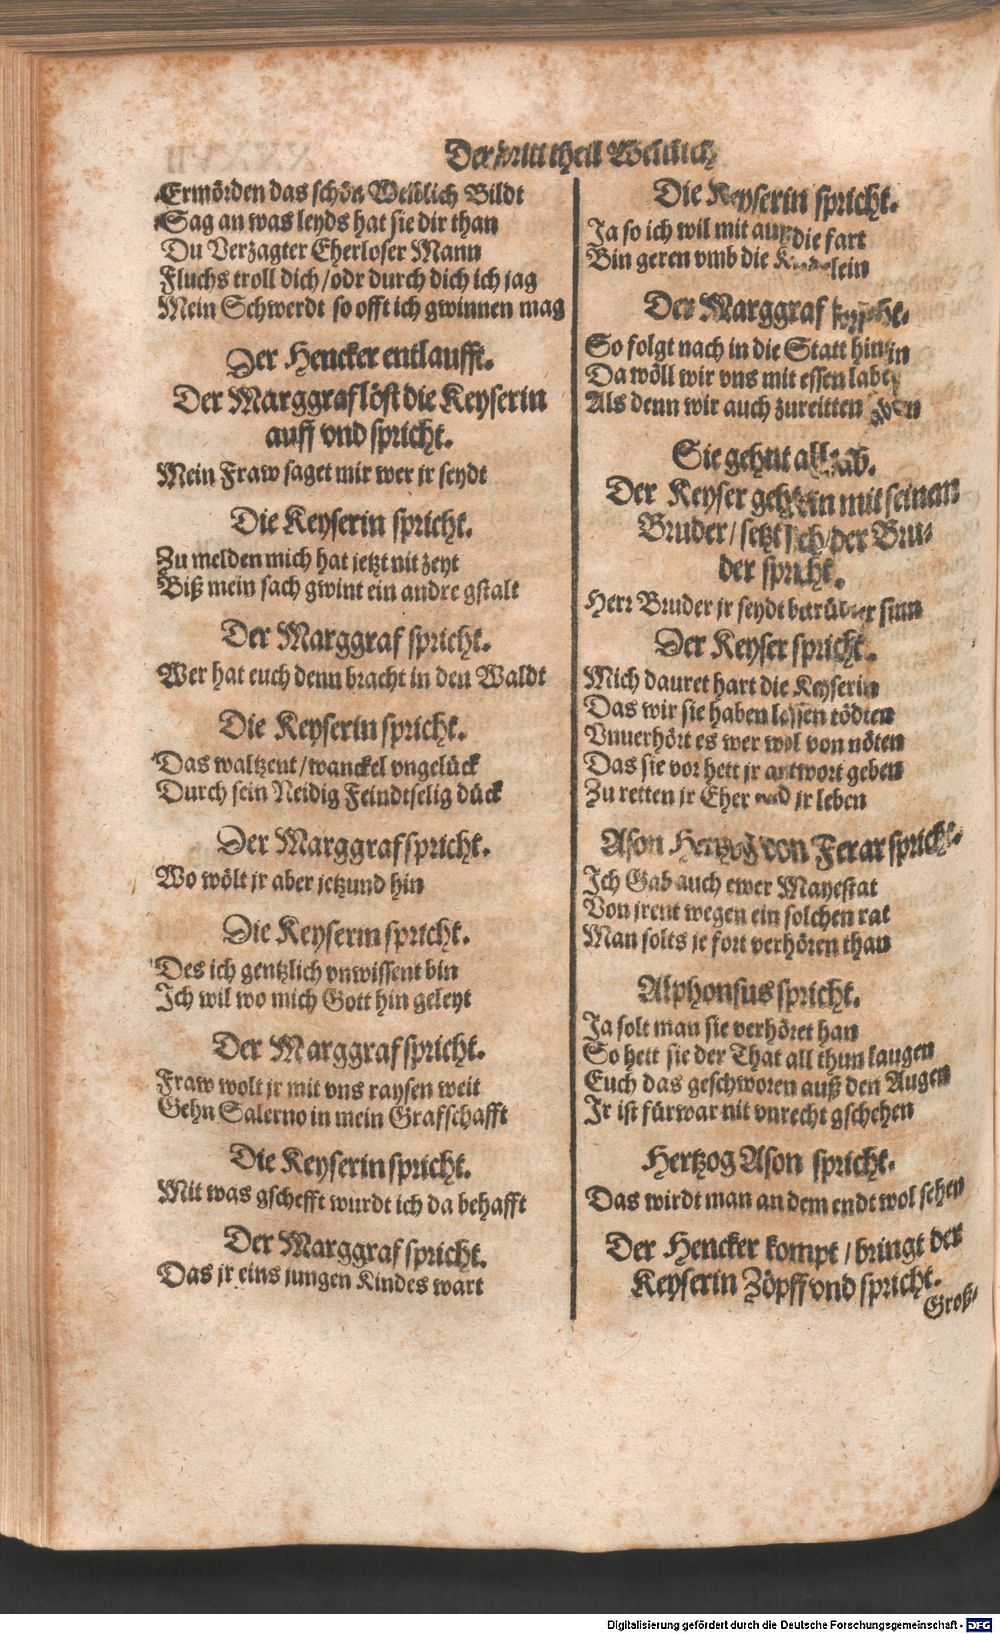 Der dritt theil Weltlich
Ermörden das schön Weiblich Bildt
Sag an was leyds hat sie dir than
Du Verzagter Eherloser Mann
Fluchs troll dich / odr durch dich ich jag
Mein Schwerdt so offt ich gwinnen mag
Der Hencker entlaufft.
Der Marggraf löst die Keyserin
auff vnd spricht.
Mein Fraw saget mir wer jr seydt
Die Keyserin spricht.
Zu melden mich hat jetzt nit zeyt
Biß mein sach gwint ein andre gstalt
Der Marggraf spricht.
Wer hat euch denn bracht in den Waldt
Die Keyserin spricht.
Das waltzent / wanckel vngelück
Durch sein Neidig Feindtselig dück
Der Marggraf spricht.
Wo wölt jr aber jetzund hin
Die Keyserin spricht.
Des ich gentzlich vnwissent bin
Ich wil wo mich Gott hin geleyt
Der Marggraf spricht.
Fraw wolt jr mit vns raysen weit
Gehn Salerno in mein Grafschafft
Die Keyserin spricht.
Mit was gschefft wurdt ich da behafft
Der Marggraf spricht.
Das jr eins jungen Kindes wart
Die Keyserin spricht.
Ja so ich wil mit auff die fart
Bin geren vmb die
Der Marggraf spricht.
So folgt nach in die Statt hinein
Da wöll wir vns mit essen laben
Als denn wir auch zureitten
Sie gehnt all ab.
Der Keyser geht ein mit seinen
Bruder / setzt sich / der Bru-
der spricht.
Herr Bruder jr seydt
Der Keyser spricht.
Mich dauret hart die Keyserin
Das wir sie haben lassen tödten
Vnuerhört es wer wol von nöten
Das sie vor hett jr antwort geben
Zu retten jr Eher vnd jr leben
Ason Hertzog von Ferar spricht.
Ich Gab auch ewer Mayestat
Von jrent wegen ein solchen rat
Man solts je fort verhören than
Alphonsus spricht.
Ja solt man sie verhöret han
So hett sie der That all thun laugen
Euch das geschworen auß den Augen
Jr ist fürwar nit vnrecht gschehen
Hertzog Ason spricht.
Das wirdt man an dem endt wol sehen
Der Hencker kompt / bringt der
Keyserin Zöpff vnd spricht.
Groß-
Digitalisierung gefördert durch die Deutsche Forschungsgemeinschaft - DFG